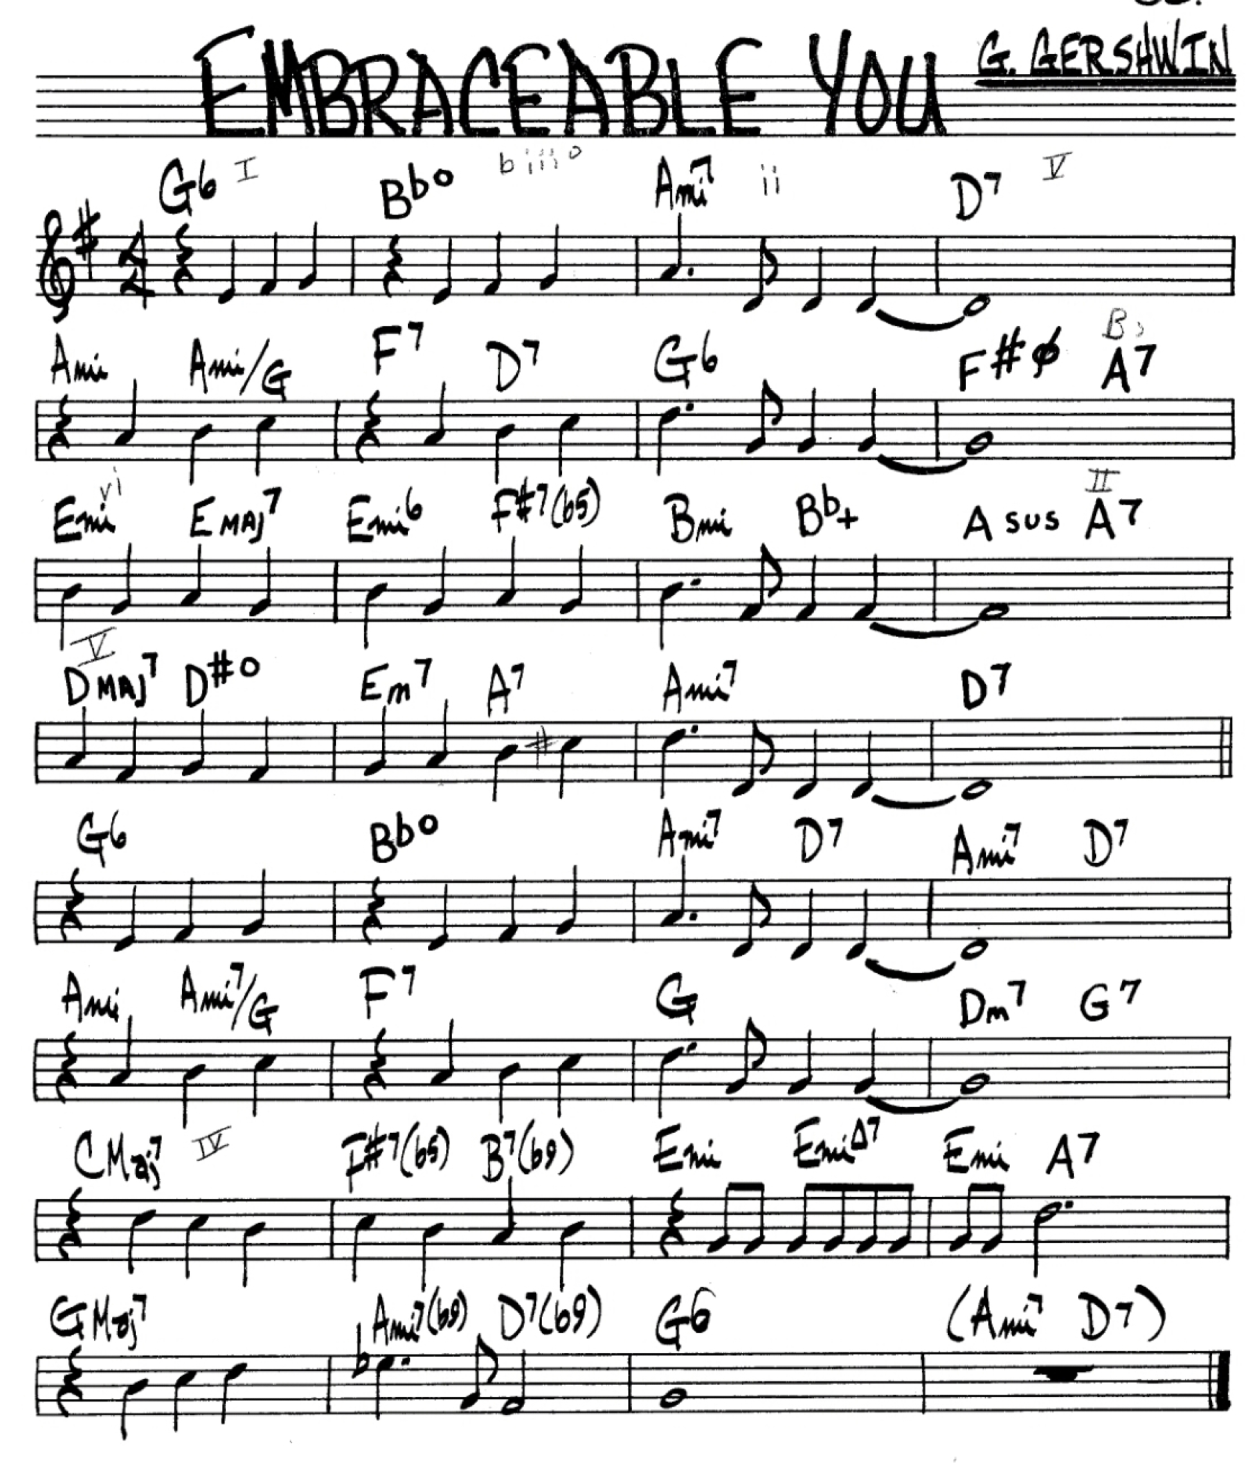 EMBRACEABLE YOU
G. GERSHWIN
G6 I Bbo biiio Ami7 ii D7 V
4
4
Ami Ami/G F7 D7 G6 F#ø A7
Emi vi EMAJ7 Emi6 F#7(b5) Bmi Bb+ A SUS A7 II
DMAJ7 V D#o Em7 A7 Ami7 D7
G6 Bbo Ami7 D7 Ami7 D7
Ami Ami7/G F7 G Dm7 G7
CMaj7 IV F#7(b5) B7(b9) Emi EmiΔ7 Emi A7
GMaj7 Ami7(b9) D7(b9) G6 (Ami7 D7)